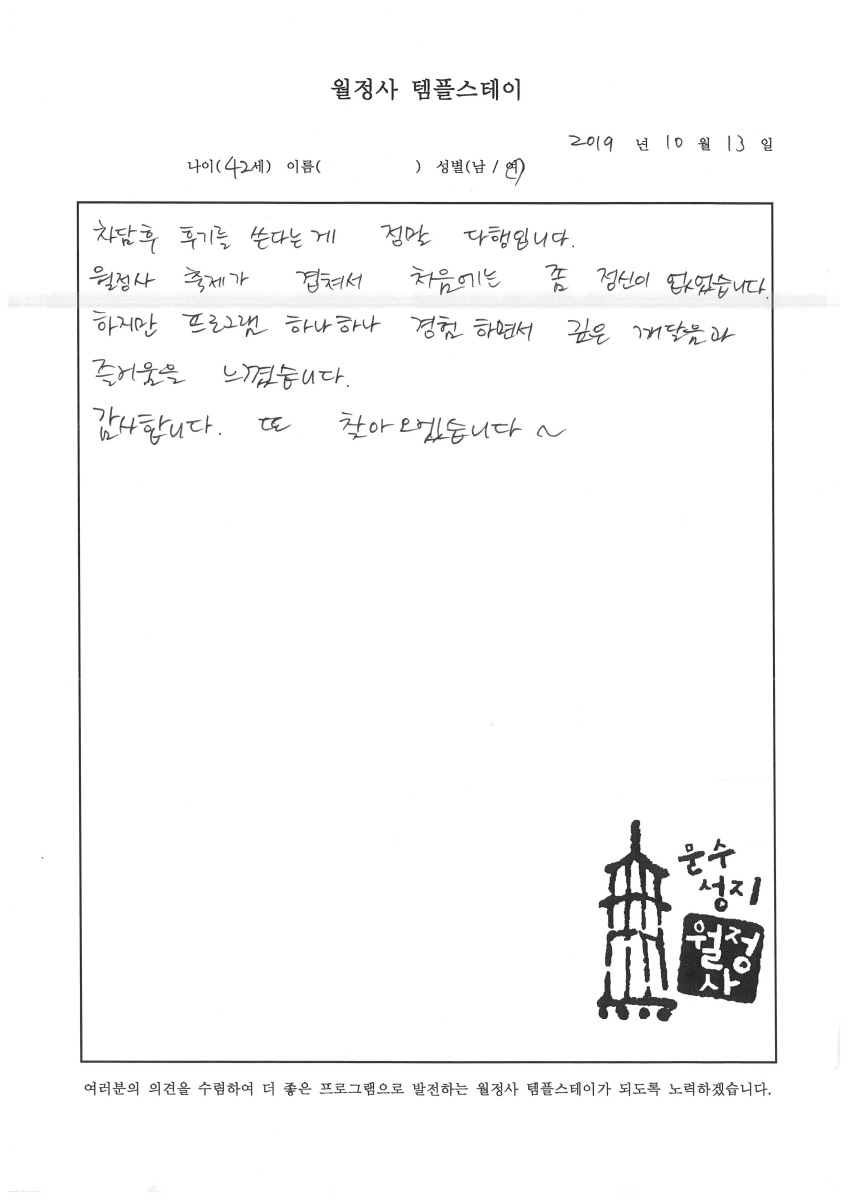 월정사 템플스테이
2019 년 10 월 13 일
나이(42세) 이름( ) 성별(남 / 여)
차담후 후기를 쓴다는게 정말 다행입니다.
월정사 축제가 겹쳐서 처음에는 좀 정신이 없었습니다.
하지만 프로그램 하나하나 경험 하면서 깊은 깨달음과
즐거움을 느꼈습니다.
감사합니다. 또 찾아오겠습니다~
문수
성지
월정
사
여러분의 의견을 수렴하여 더 좋은 프로그램으로 발전하는 월정사 템플스테이가 되도록 노력하겠습니다.